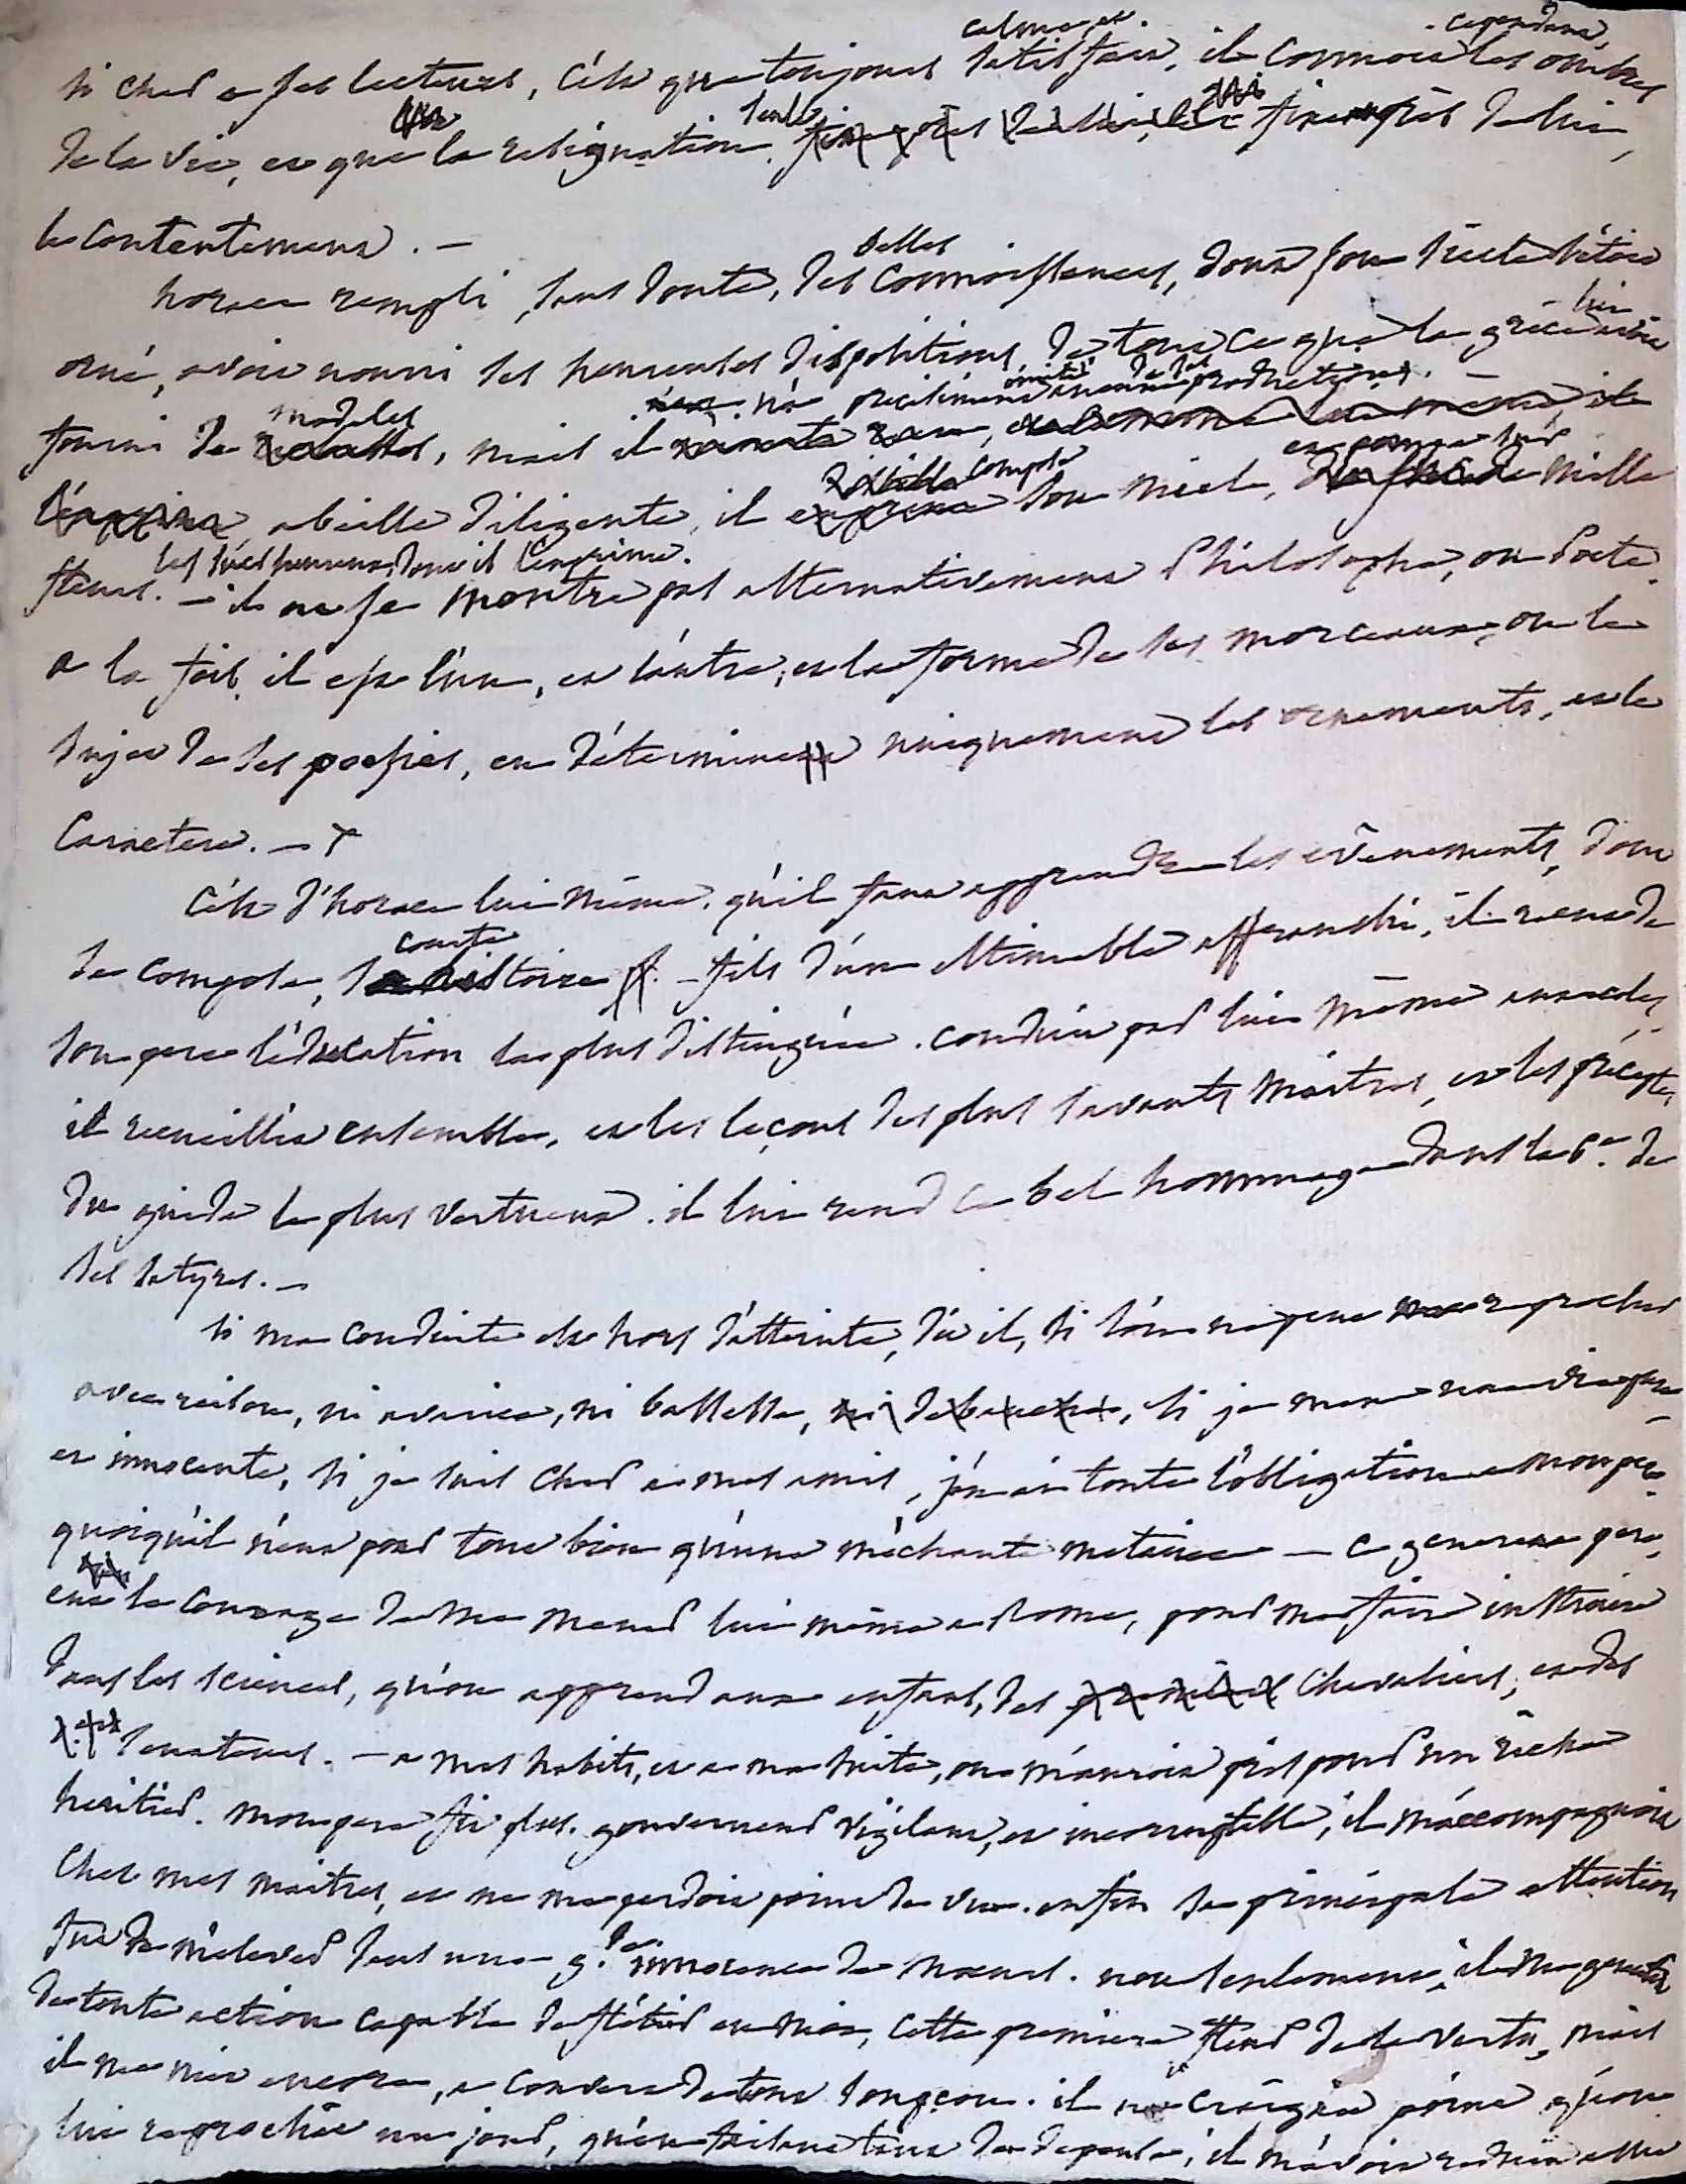 calme et . cependant,
si cher a ses lecteurs, c'est que toujours satisfait, il connoit les ombres
de la vie, et que la resignation seule fixe près de lui,
le contentement. —
horace rempli, sans doute, des belles connoissances, dont son siecle étoit
orné, avoit nourri ses heureuses dispositions, de tout ce que la grèce lui avoit
fourni de modeles, mais il n'a précisément imité aucune de ses productions.
abeille diligente, il compose son miel, de mille
fleurs. les sucs heureux dont il l'exprime. — il ne se montre pas alternativement Philosophe, ou Poete.
a la fois il est l'un, et l'autre; et la forme de ses morceaux, ou le
sujet de ses poesies, en détermine uniquement les ornements, et le
Caractere. — +
C'est d'horace lui même, qu'il faut apprendre les évènements, dont
se compose, sa courte histoire. — fils d'un estimable affranchi, il reçut de
son pere l'éducation la plus distinguée. conduit par lui même aux ecoles,
il recueillit ensemble, et les leçons des plus savants maitres, et les préceptes
du guide le plus vertueux. il lui rend ce bel hommage dans la 6.e de
ses satyres. —
si ma conduite est hors d'atteinte, dit il, si l'on ne peut me reprocher
avec raison, ni avarice, ni bassesse, ni debauche, si je mene une vie pure
et innocente, si je suis cher a mes amis, j'en ai toute l'obligation a mon pere.
quoiqu'il n'eut pour tout bien qu'une méchante metairie — ce genereux pere,
eut le courage de me mener lui même a Rome, pour me faire instruire
dans les sciences, qu'on apprend aux enfans, des chevaliers, et des
senateurs. — a mes habits, et a ma suite, on m'auroit pris pour un riche
heritier. mon pere fit plus. gouverneur vigilant, et incorruptible, il m'accompagnoit
chez mes maitres, et ne me perdoit point de vue. enfin sa principale attention
fut de m'elever dans une g.de innocence de moeurs. non seulement, il me garantit
de toute action capable de flétrir en moi, cette premiere fleur de la vertu, mais
il me mit encore, a couvert de tout soupçon. il ne craignit point qu'on
lui reprochât un jour, qu'en faisant tant de depense, il m'avoit reduit a